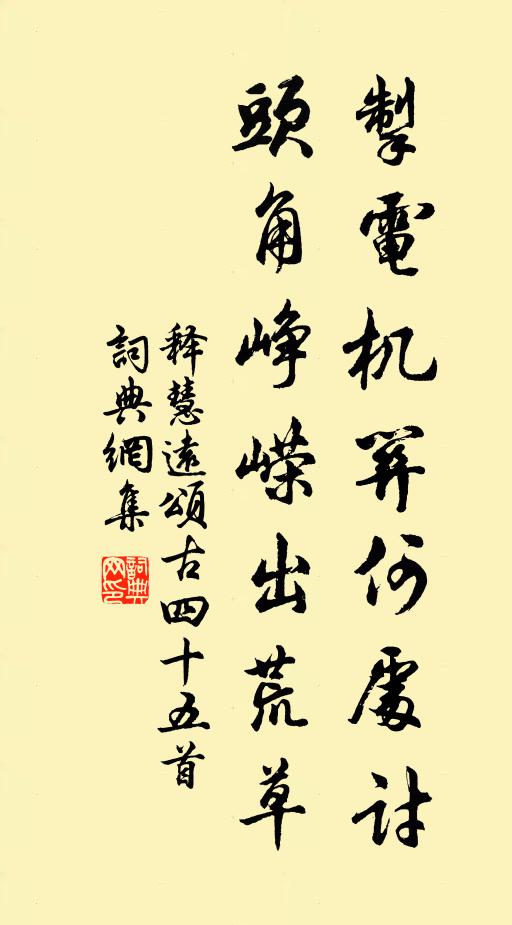 掣電机関何處討
頭角峥嶸出荒草
释慧遠頌古四十五首
詞典網集
詞典網印